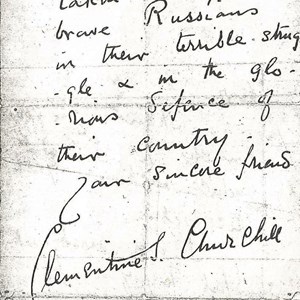 Russians
brave
in their terrible strug
-gle & in the glo-
-rious defence of
their country.
Your sincere friend
Clementine S. Churchill